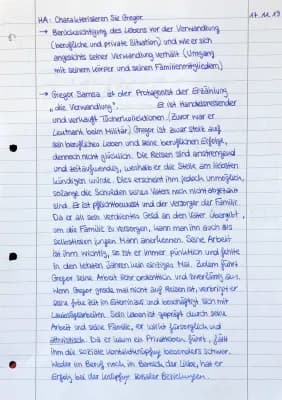 HA: Charakterisieren Sie Gregor 17.11.19
→ Berücksichtigung des Lebens vor der Verwandlung
(berufliche und private Situation) und wie er sich
angesichts seiner Verwandlung verhält (Umgang
mit seinem Körper und seinen Familienmitgliedern)
→ Gregor Samsa ist der Protagonist der Erzählung
„die Verwandlung". Er ist Handelsreisender
und verkauft Tuchkollektionen. (Zuvor war er
Leutnant beim Militär) Gregor ist zwar stolz auf
sein berufliches Leben und seine beruflichen Erfolge,
dennoch nicht glücklich. Die Reisen sind anstrengend
und zeitaufwendig, weshalb er die Stelle am liebsten
kündigen würde. Dies erscheint ihm jedoch unmöglich,
solange die Schulden seines Vaters noch nicht abgezahlt
sind. Er ist pflichtbewusst und der Versorger der Familie.
Da er all sein verdientes Geld an den Vater übergibt,
um die Familie zu versorgen, kann man ihn auch als
selbstlosen jungen Mann anerkennen. Seine Arbeit
ist ihm wichtig, so ist er immer pünktlich und fehlte
in den letzten Jahren kein einziges Mal. Zudem führt
Gregor seine Arbeit sehr ordentlich und zuverlässig aus.
Wenn Gregor grade mal nicht auf Reisen ist, verbringt er
seine freie Zeit im Elternhaus und beschäftigt sich mit
Laubsägearbeiten. Sein Leben ist geprägt durch seine
Arbeit und seine Familie, er wirkt fürsorglich und
altruistisch. Da er kaum ein Privatleben führt, fällt
ihm die soziale Kontaktknüpfung besonders schwer.
Weder im Beruf noch im Bereich der Liebe, hat er
Erfolg bei der Knüpfung sozialer Beziehungen.